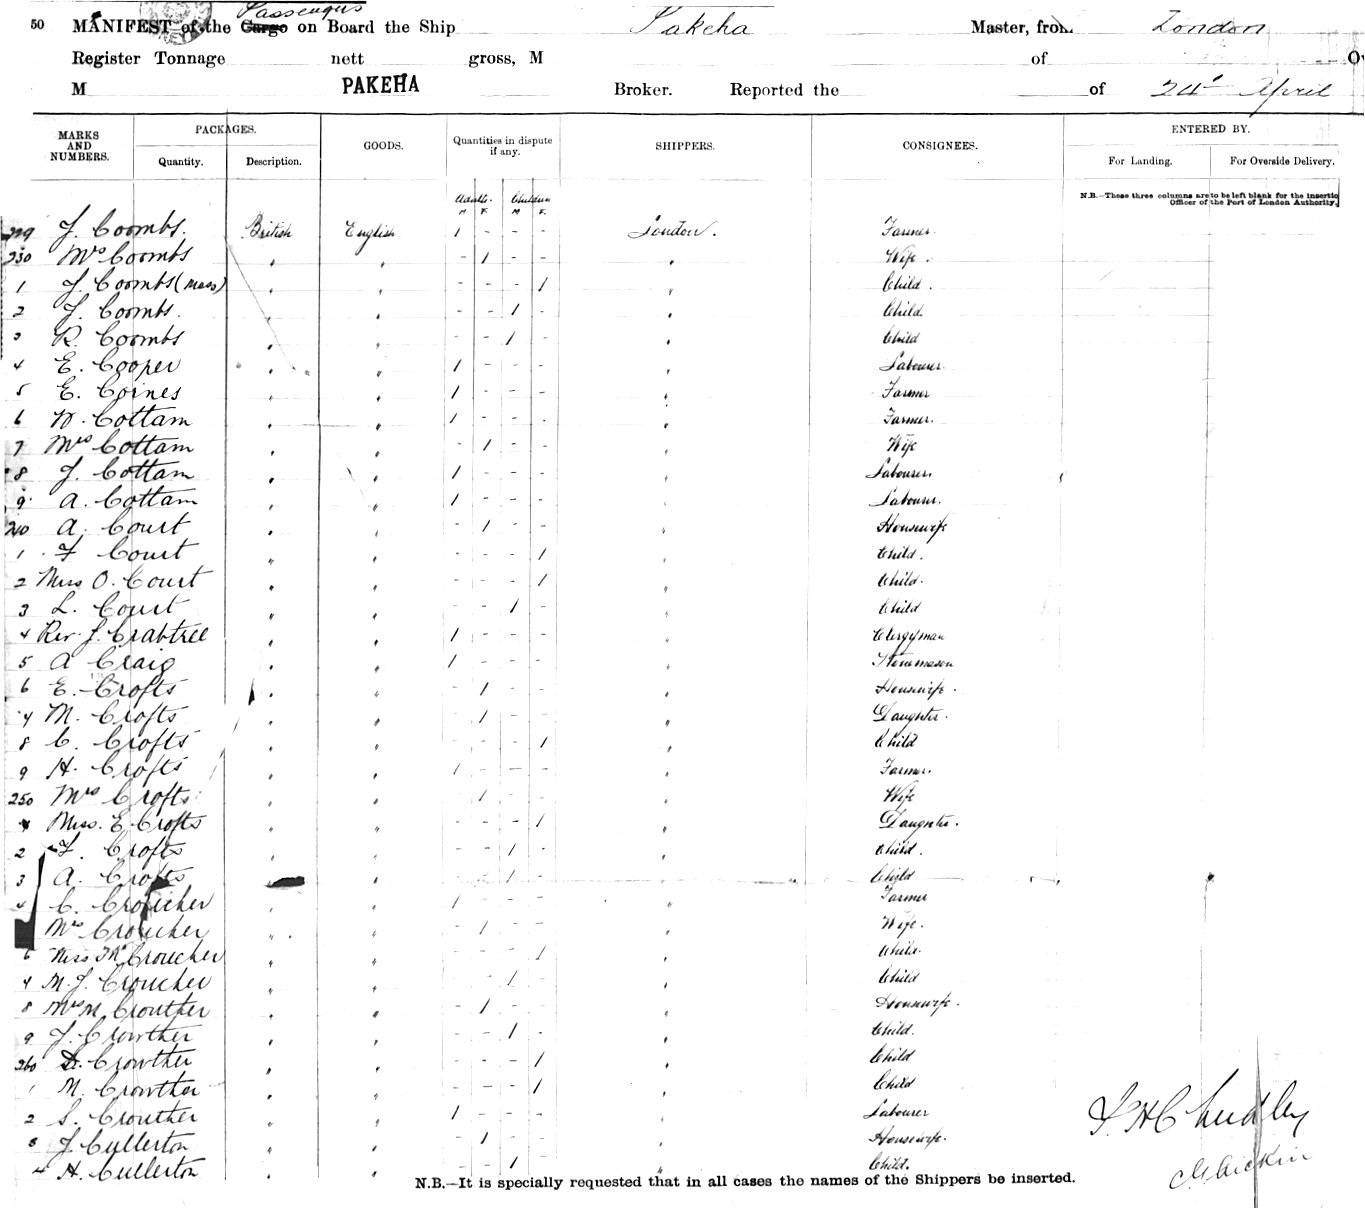 Passengers
50 MANIFEST of the Cargo on Board the Ship Pakeha Master, from London
Register Tonnage nett gross, M of
M PAKEHA Broker. Reported the of 24t April
MARKS AND NUMBERS. PACKAGES. GOODS. Quantities in dispute if any. SHIPPERS. CONSIGNEES. ENTERED BY.
Quantity. Description. For Landing. For Overside Delivery.
N.B.—These three columns are to be left blank for the insertio
Officer of the Port of London Authority.
Adults. Children
M F. M F.
229 J. Coombs. British English 1 - - - London. Farmer.
230 Mrs Coombs " " - 1 - - " Wife.
1 J. Coombs (Miss) " " - - - 1 " Child.
2 J. Coombs. " " - - 1 - " Child.
3 R. Coombs " " - - 1 - " Child
4 E. Cooper " " 1 - - - " Labourer.
5 E. Coines " " 1 - - - " Farmer
6 W. Cottam " " 1 - - - " Farmer.
7 Mrs Cottam " " - 1 - - " Wife
8 J. Cottam " " 1 - - - " Labourer.
9 A. Cottam " " 1 - - - " Labourer.
240 A. Court " " - 1 - - " Housewife
1 F Court " " - - - 1 " Child.
2 Miss O. Court " " - - - 1 " Child.
3 L. Court " " - - 1 - " Child
4 Rev. J. Crabtree " " 1 - - - " Clergyman
5 A Craig " " 1 - - - " Stonemason
6 E. Crofts " " - 1 - - " Housewife.
7 M. Crofts " " - 1 - - " Daughter.
8 C. Crofts " " - - - 1 " Child
9 H. Crofts " " 1 - - - " Farmer.
250 Mrs Crofts " " - 1 - - " Wife
1 Miss. E Crofts " " - - - 1 " Daughter.
2 F. Crofts " " - - 1 - " Child.
3 A. Crofts " - - 1 - Child
4 C. Croucher " " 1 - - - " Farmer
Mrs Croucher " " - 1 - - Wife.
6 Miss Croucher " " - - - 1 Child.
7 M. J. Croucher " " - - 1 - Child
8 Mrs M. Crouther " " - 1 - - Housewife.
9 J. Crowther " " - - 1 - Child.
260 D. Crowther " " - - - 1 Child
1 M. Crowther " " - - - 1 Child
2 S. Crouther " " 1 - - - Labourer
3 J Cullerton " " - 1 - - Housewife.
4 H. Cullerton " " - - 1 - " Child.
N.B.—It is specially requested that in all cases the names of the Shippers be inserted.
F. H Chudley